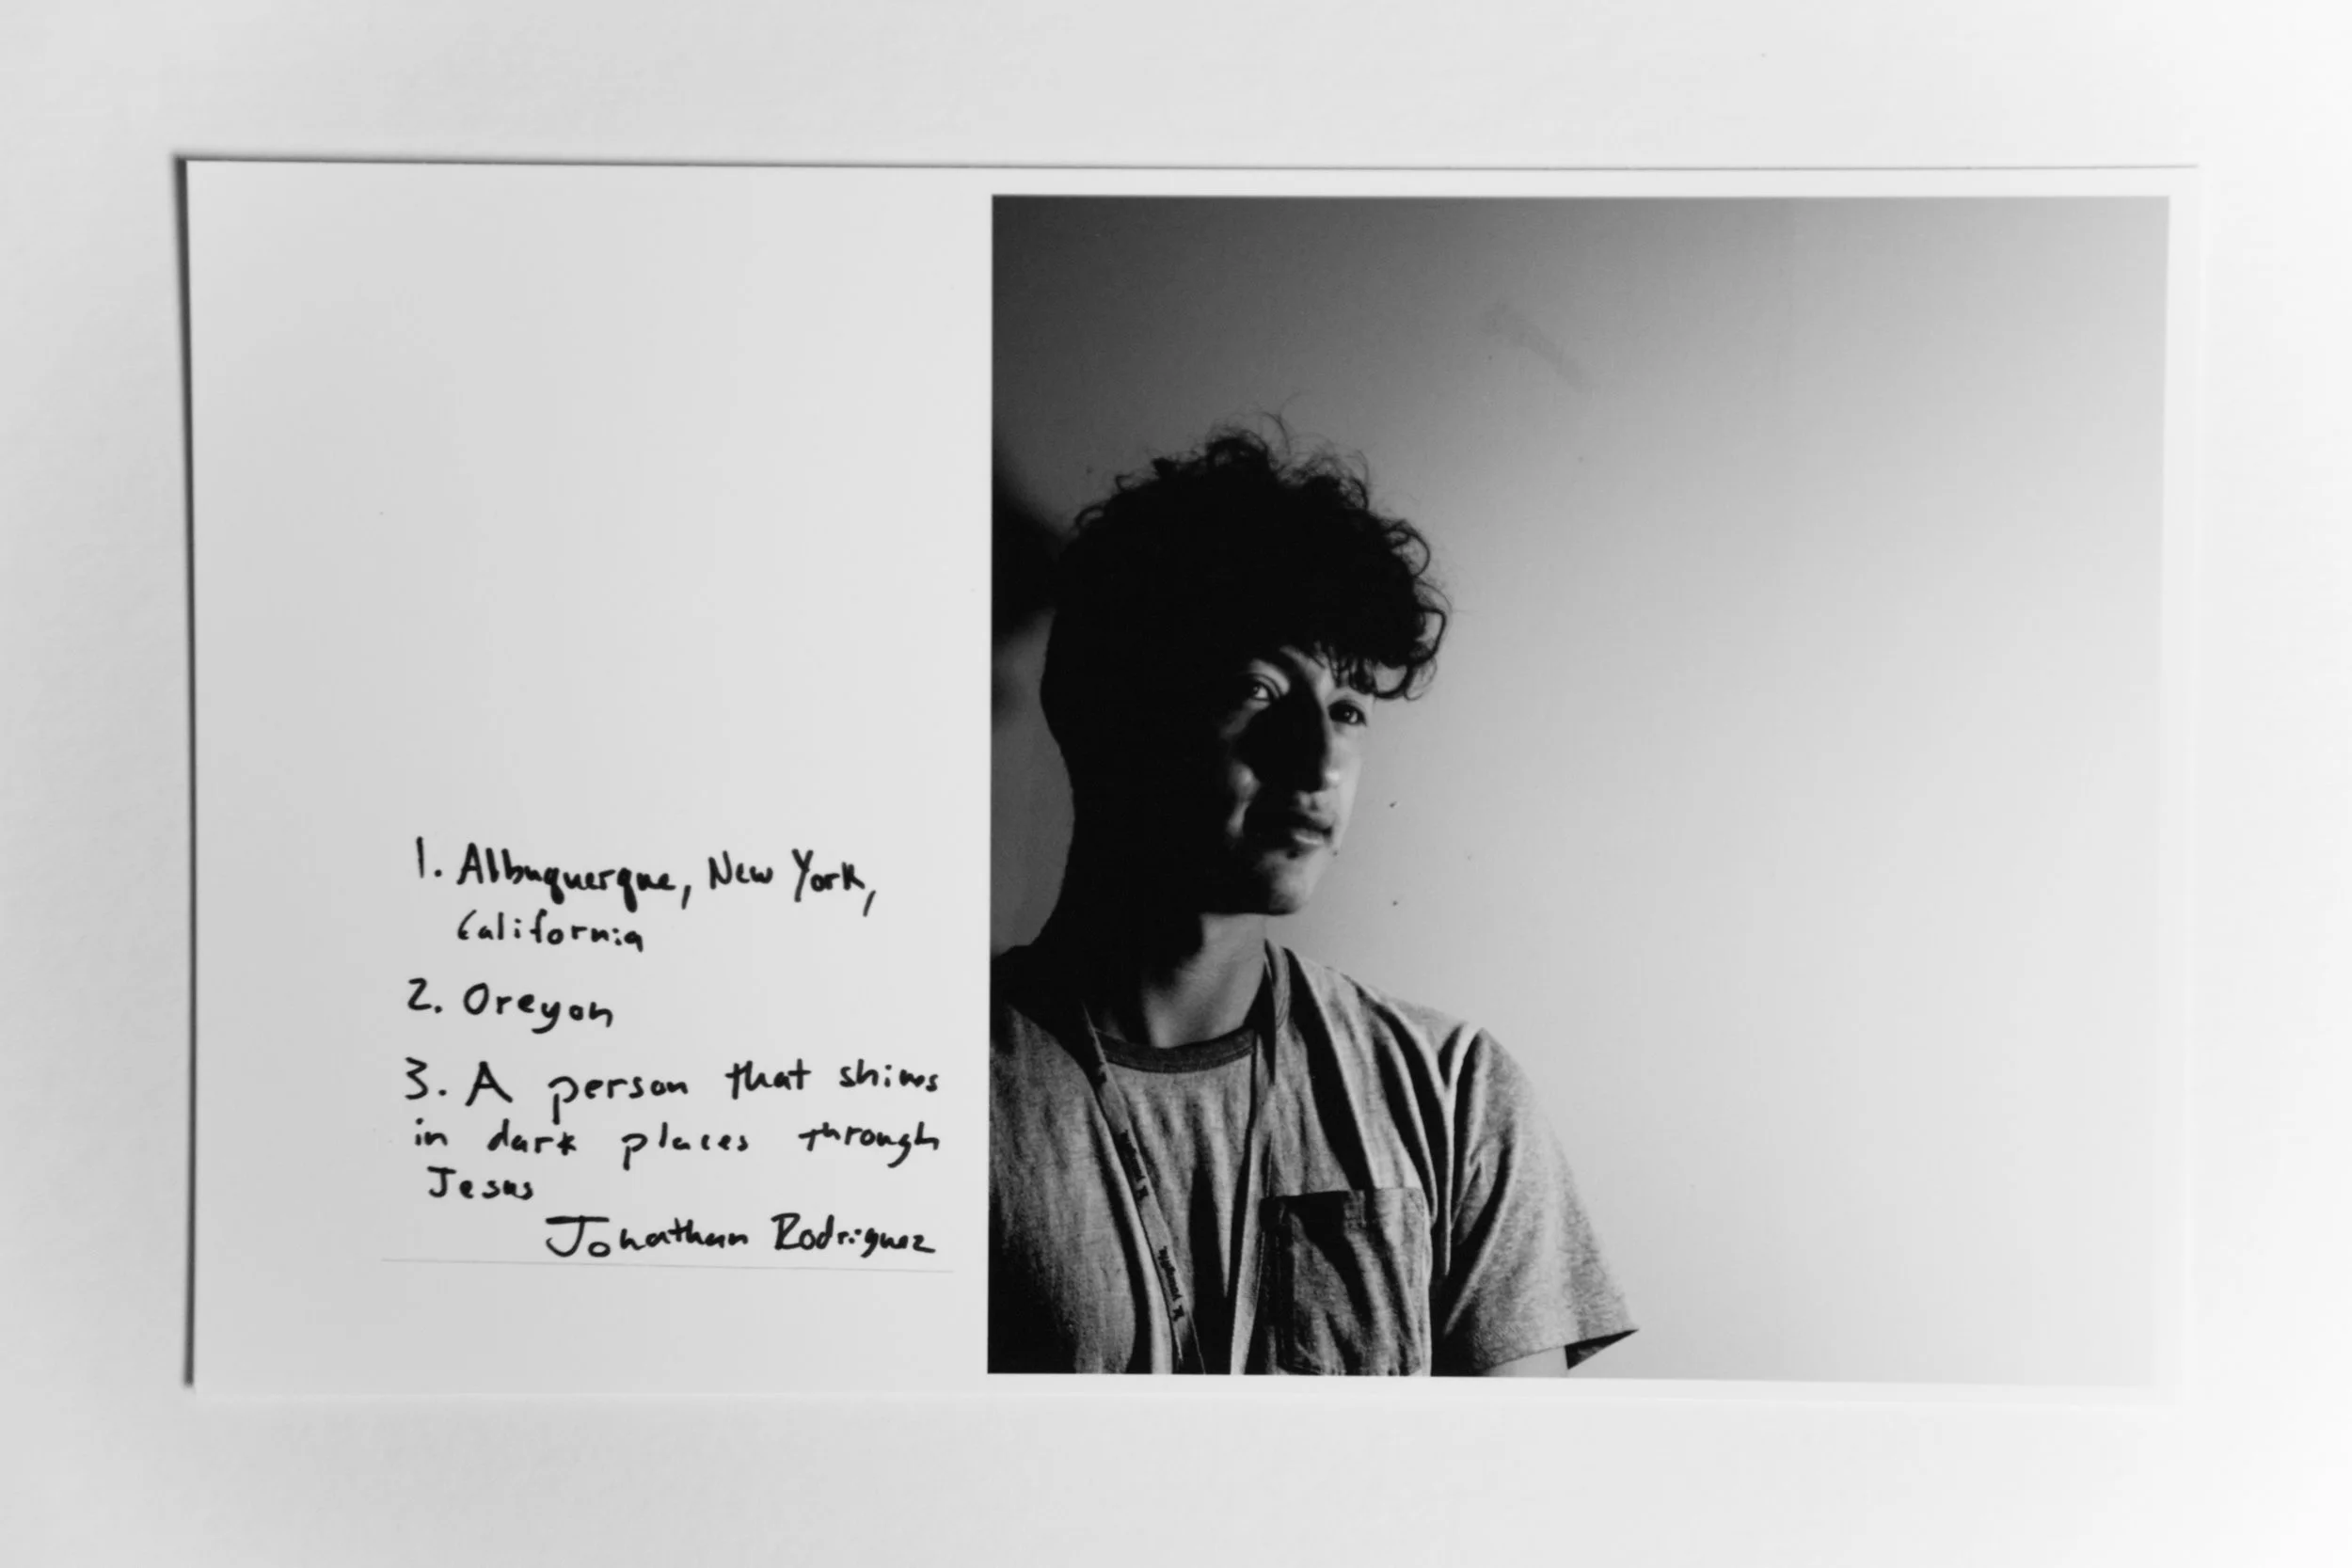 1. Albuquerque, New York,
California
2. Oregon
3. A person that shines
in dark places through
Jesus
Jonathan Rodriguez